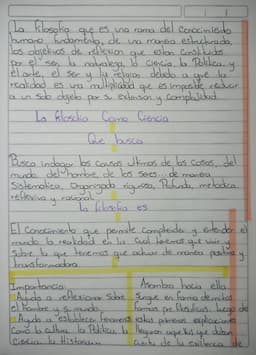 La filosofia que es una rama del Conocimiento
humano, fundamento, de una manera estructurada,
los objetivos de reflexion que estan Constituidos
por el ser, la naturaleza, la Ciencia, la Politica y
el arte, el ser y la religion, debido a que la
realidad es una multiplicidad que es imposible reducir
a un solo objeto por su extension y Complejidad.
La filosofia Como Ciencia
Que busca
Busca indagar las causas ultimas de las Cosas, del
mundo del hombre, de los seres... de manera
Sistematica, Organizada rigurosa, Profunda, metodica,
reflexiva y racional
la filosofia es
El Conocimiento que permite Comprender y entender el
mundo la realidad en la Cual tenemos que vivir y
Sobre la que tenemos que actuar de manera positiva y
transformadora.
Importancia:
Ayuda a reflexionar Sobre
el hombre y su mundo
Ayuda a establecer fenomenos
como la cultura la Politica, la
Ciencia la Historia
Asombro hacia ello
Surge en forma de mitos
formas pre filosoficas, luego de
estas primeras explicaciones
llegaron aquellos que daban
Cuenta de la existencia de